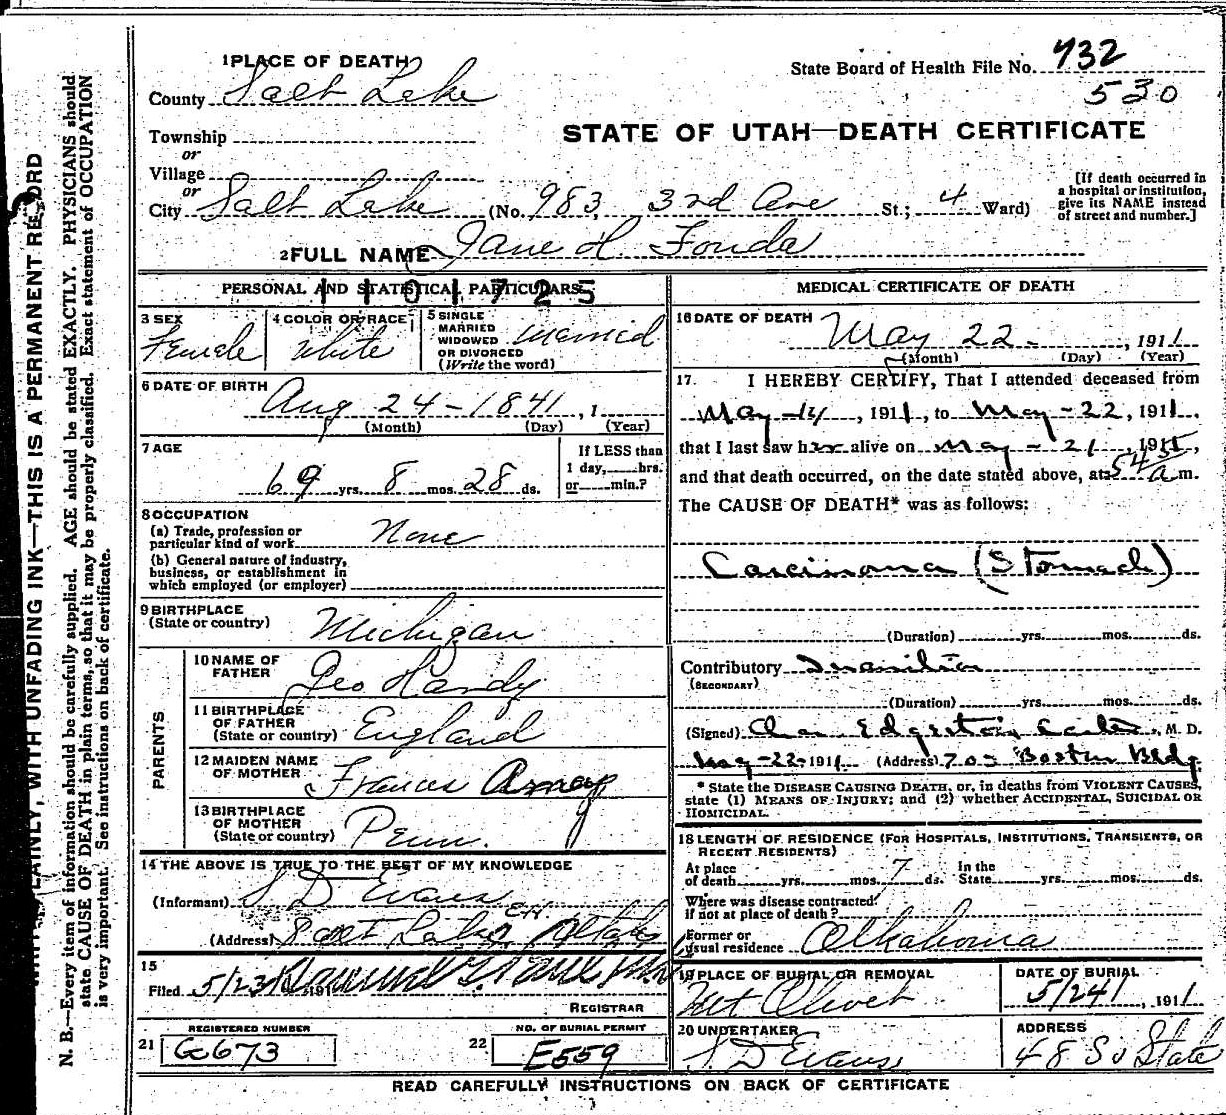 WRITE PLAINLY, WITH UNFADING INK—THIS IS A PERMANENT RECORD
N. B.—Every item of information should be carefully supplied. AGE should be stated EXACTLY. PHYSICIANS should
state CAUSE OF DEATH in plain terms, so that it may be properly classified. Exact statement of OCCUPATION
is very important. See instructions on back of certificate.
1 PLACE OF DEATH
State Board of Health File No. 732
530
County Salt Lake
STATE OF UTAH—DEATH CERTIFICATE
Township
or
Village
or
City Salt Lake (No. 983 3rd Ave St.; 4 Ward)
[If death occurred in
a hospital or institution,
give its NAME instead
of street and number.]
2 FULL NAME Jane H. Fonda
PERSONAL AND STATISTICAL PARTICULARS
1101725
3 SEX
Female
4 COLOR OR RACE
White
5 SINGLE
MARRIED
WIDOWED
OR DIVORCED
(Write the word)
Married
6 DATE OF BIRTH
Aug 24-1841, 1
(Month) (Day) (Year)
7 AGE
69 yrs. 8 mos. 28 ds.
If LESS than
1 day, hrs.
or min.?
8 OCCUPATION
(a) Trade, profession or
particular kind of work None
(b) General nature of industry,
business, or establishment in
which employed (or employer)
9 BIRTHPLACE
(State or country) Michigan
PARENTS
10 NAME OF
FATHER Geo Handy
11 BIRTHPLACE
OF FATHER
(State or country) England
12 MAIDEN NAME
OF MOTHER Frances
13 BIRTHPLACE
OF MOTHER
(State or country) Penn.
14 THE ABOVE IS TRUE TO THE BEST OF MY KNOWLEDGE
(Informant) S D Evans
(Address) Salt Lake Utah
15
Filed 5/23 191
REGISTRAR
REGISTERED NUMBER
21 G673
NO. OF BURIAL PERMIT
22 E559
MEDICAL CERTIFICATE OF DEATH
16 DATE OF DEATH
May 22 , 1911
(Month) (Day) (Year)
17. I HEREBY CERTIFY, That I attended deceased from
May , 1911, to May-22, 1911,
that I last saw her alive on May-21, 1911,
and that death occurred, on the date stated above, at 545 a m.
The CAUSE OF DEATH* was as follows:
Carcinoma (Stomach)
(Duration) yrs. mos. ds.
Contributory Inanition
(SECONDARY)
(Duration) yrs. mos. ds.
(Signed) Chas Edgerton , M. D.
May-22-1911. (Address) 705 Boston Bldg.
* State the DISEASE CAUSING DEATH, or, in deaths from VIOLENT CAUSES,
state (1) MEANS OF INJURY; and (2) whether ACCIDENTAL, SUICIDAL OR
HOMICIDAL.
18 LENGTH OF RESIDENCE (FOR HOSPITALS, INSTITUTIONS, TRANSIENTS, OR
RECENT RESIDENTS)
At place
of death yrs. mos. 7 ds.
In the
State yrs. mos. ds.
Where was disease contracted
if not at place of death?
Former or
usual residence Olkahoma
19 PLACE OF BURIAL OR REMOVAL
Mt Olivet
DATE OF BURIAL
5/24/, 1911
20 UNDERTAKER
S D Evans
ADDRESS
48 So State
READ CAREFULLY INSTRUCTIONS ON BACK OF CERTIFICATE